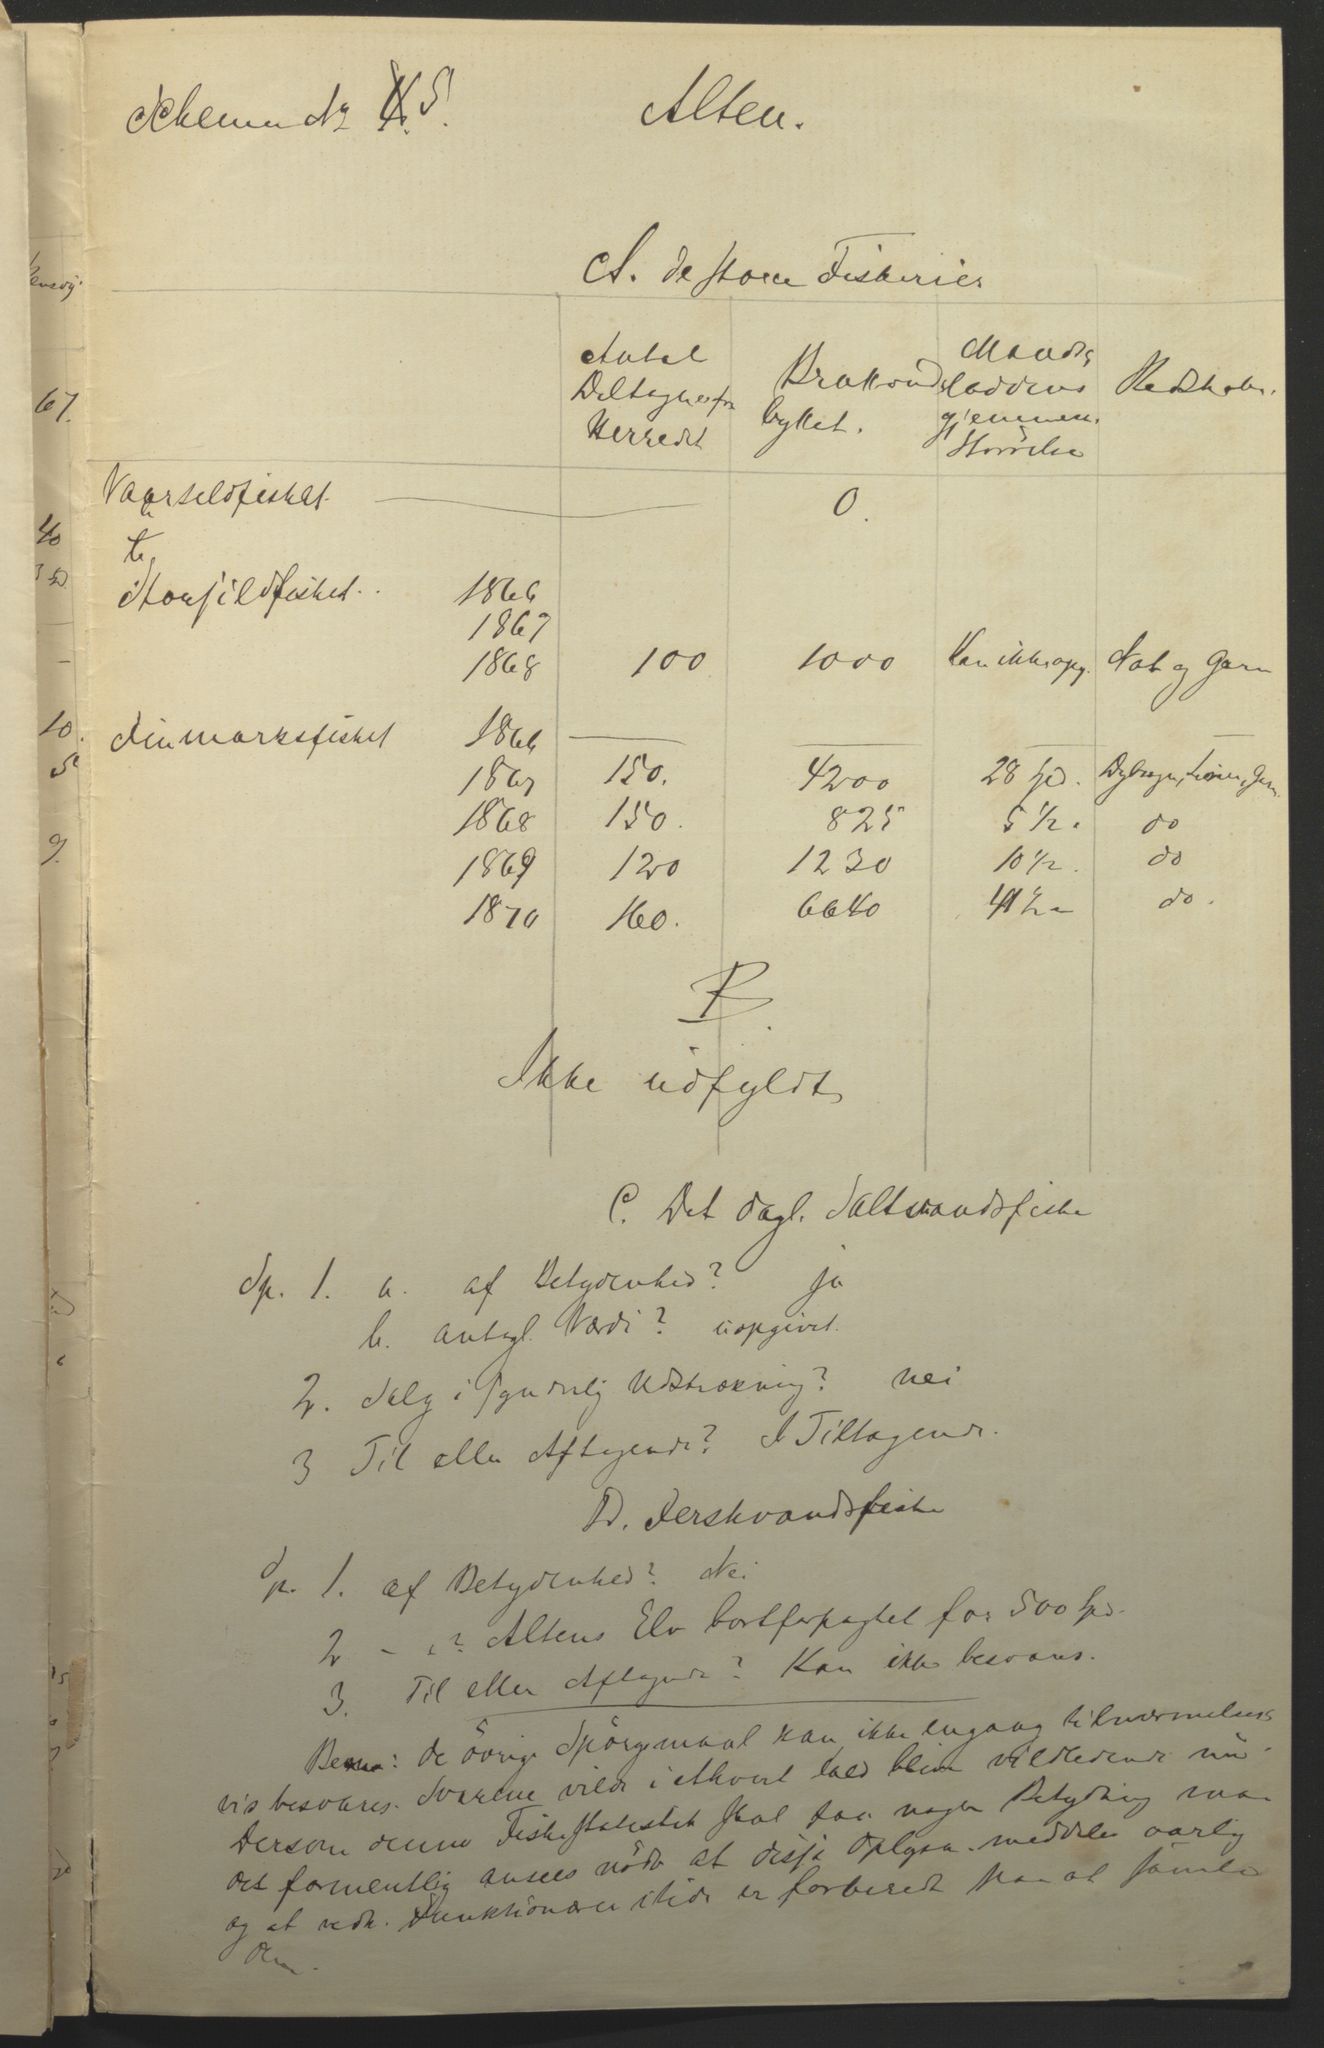 Schema No 5.
Alten.
A. de store Fiskerier
Antal Deltagere fra Herredet | Bruttoudbyttet. | Mandsloddens gjennem. Størrelse | Redskaber.
Vaarsildfisket 0.
Storsildfisket 1866
1867
1868 100 1000 Kan ikke opg. Not og Garn
Finmarksfisket 1866
1867 150. 4200 28 Spd. Dybsagn, Liner, Garn
1868 150. 825 5 1/2 do
1869 120 1230 10 1/2. do
1870 160. 6640 41 1/2 do.
B.
Ikke udfyldt
C. Det dagl. Saltvandsfiske
Sp. 1. a. af Betydenhed? ja
b. antagl. Værdi? uopgivet.
2. Salg i synderlig Udstrækning? nei
3 Til eller Aftagende? I Tiltagende.
D. Ferskvandsfiske
Sp. 1. af Betydenhed? Nei
2 - "? Altens Elv bortforpagtet for 500 Spd.
3. Til eller Aftagende? Kan ikke besvares.
Bem: de övrige Spörgsmaal kan ikke engang tilnærmelses
vis besvares. Svarene vilde i ethvert Fald blive vildledende
Dersom denne Fiskestatistik skal faa nogen Betydning maa
det formentlig ansees nödv. at disse Oplysn. meddeles aarlig
og at vedk. Funktionærer itide er forberedt paa at samle
dem.
67.
40
10.
9.